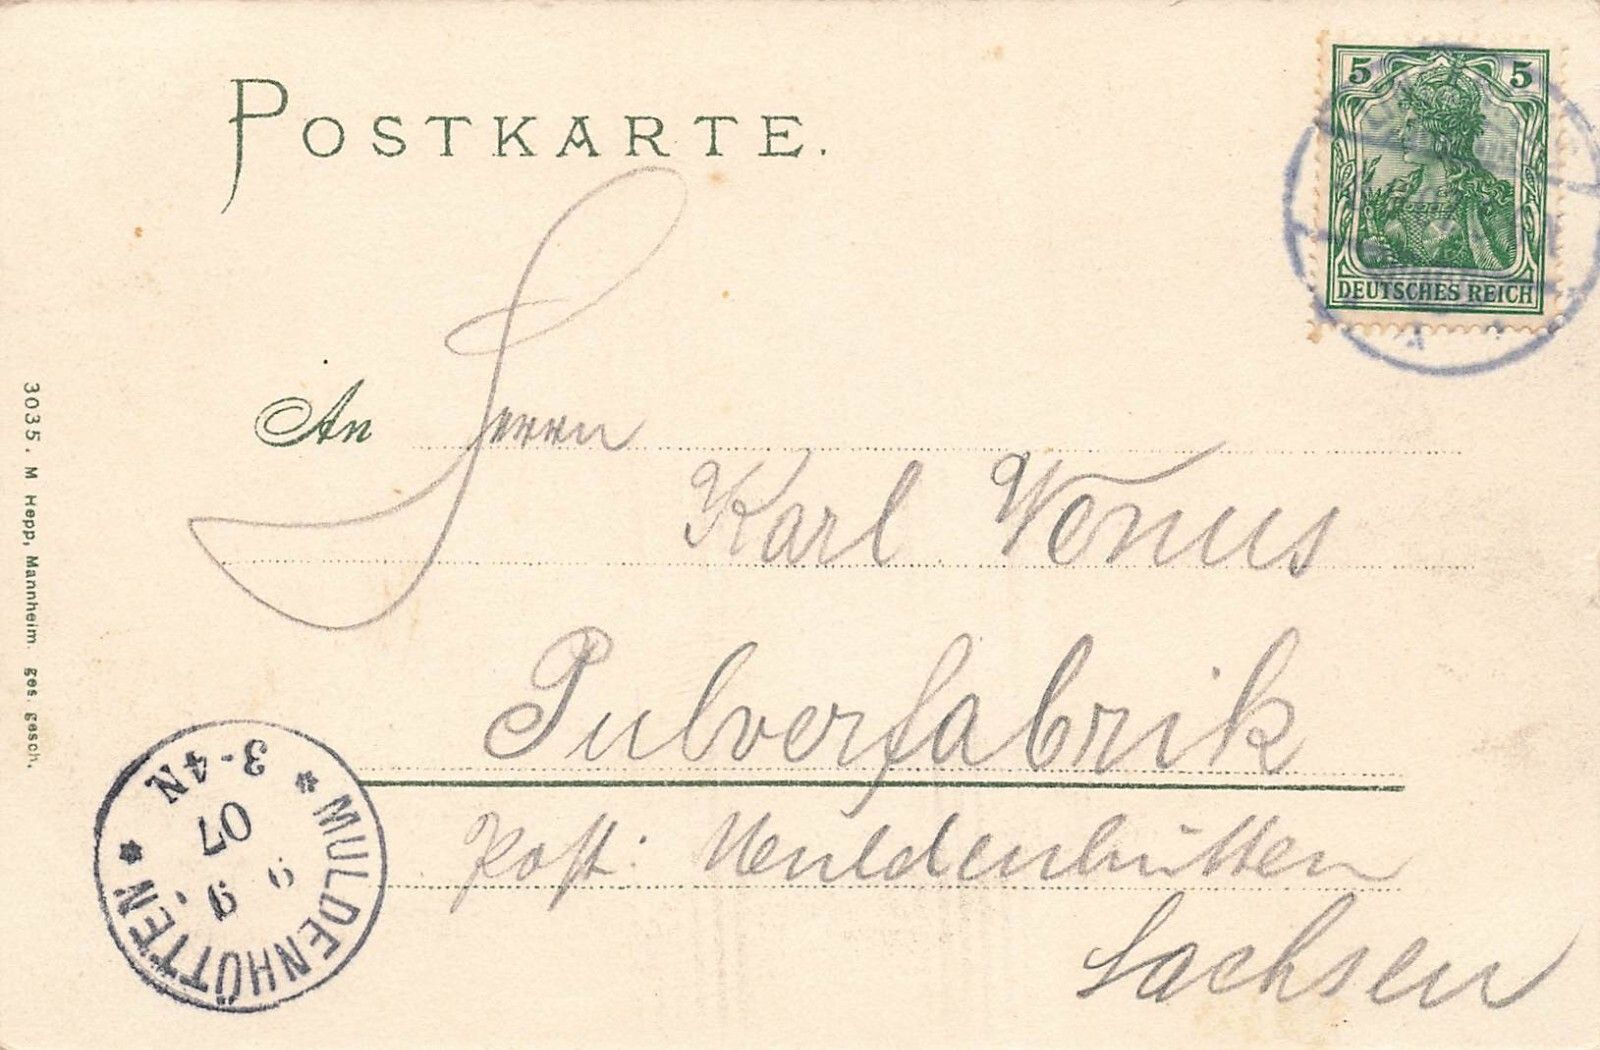 POSTKARTE.
5 5
DEUTSCHES REICH
An Herrn
Karl Venus
Pulverfabrik
Post: Muldenhütten
Sachsen
3035. M Hepp, Mannheim. ges. gesch.
* MULDENHÜTTEN *
9
07
3-4N